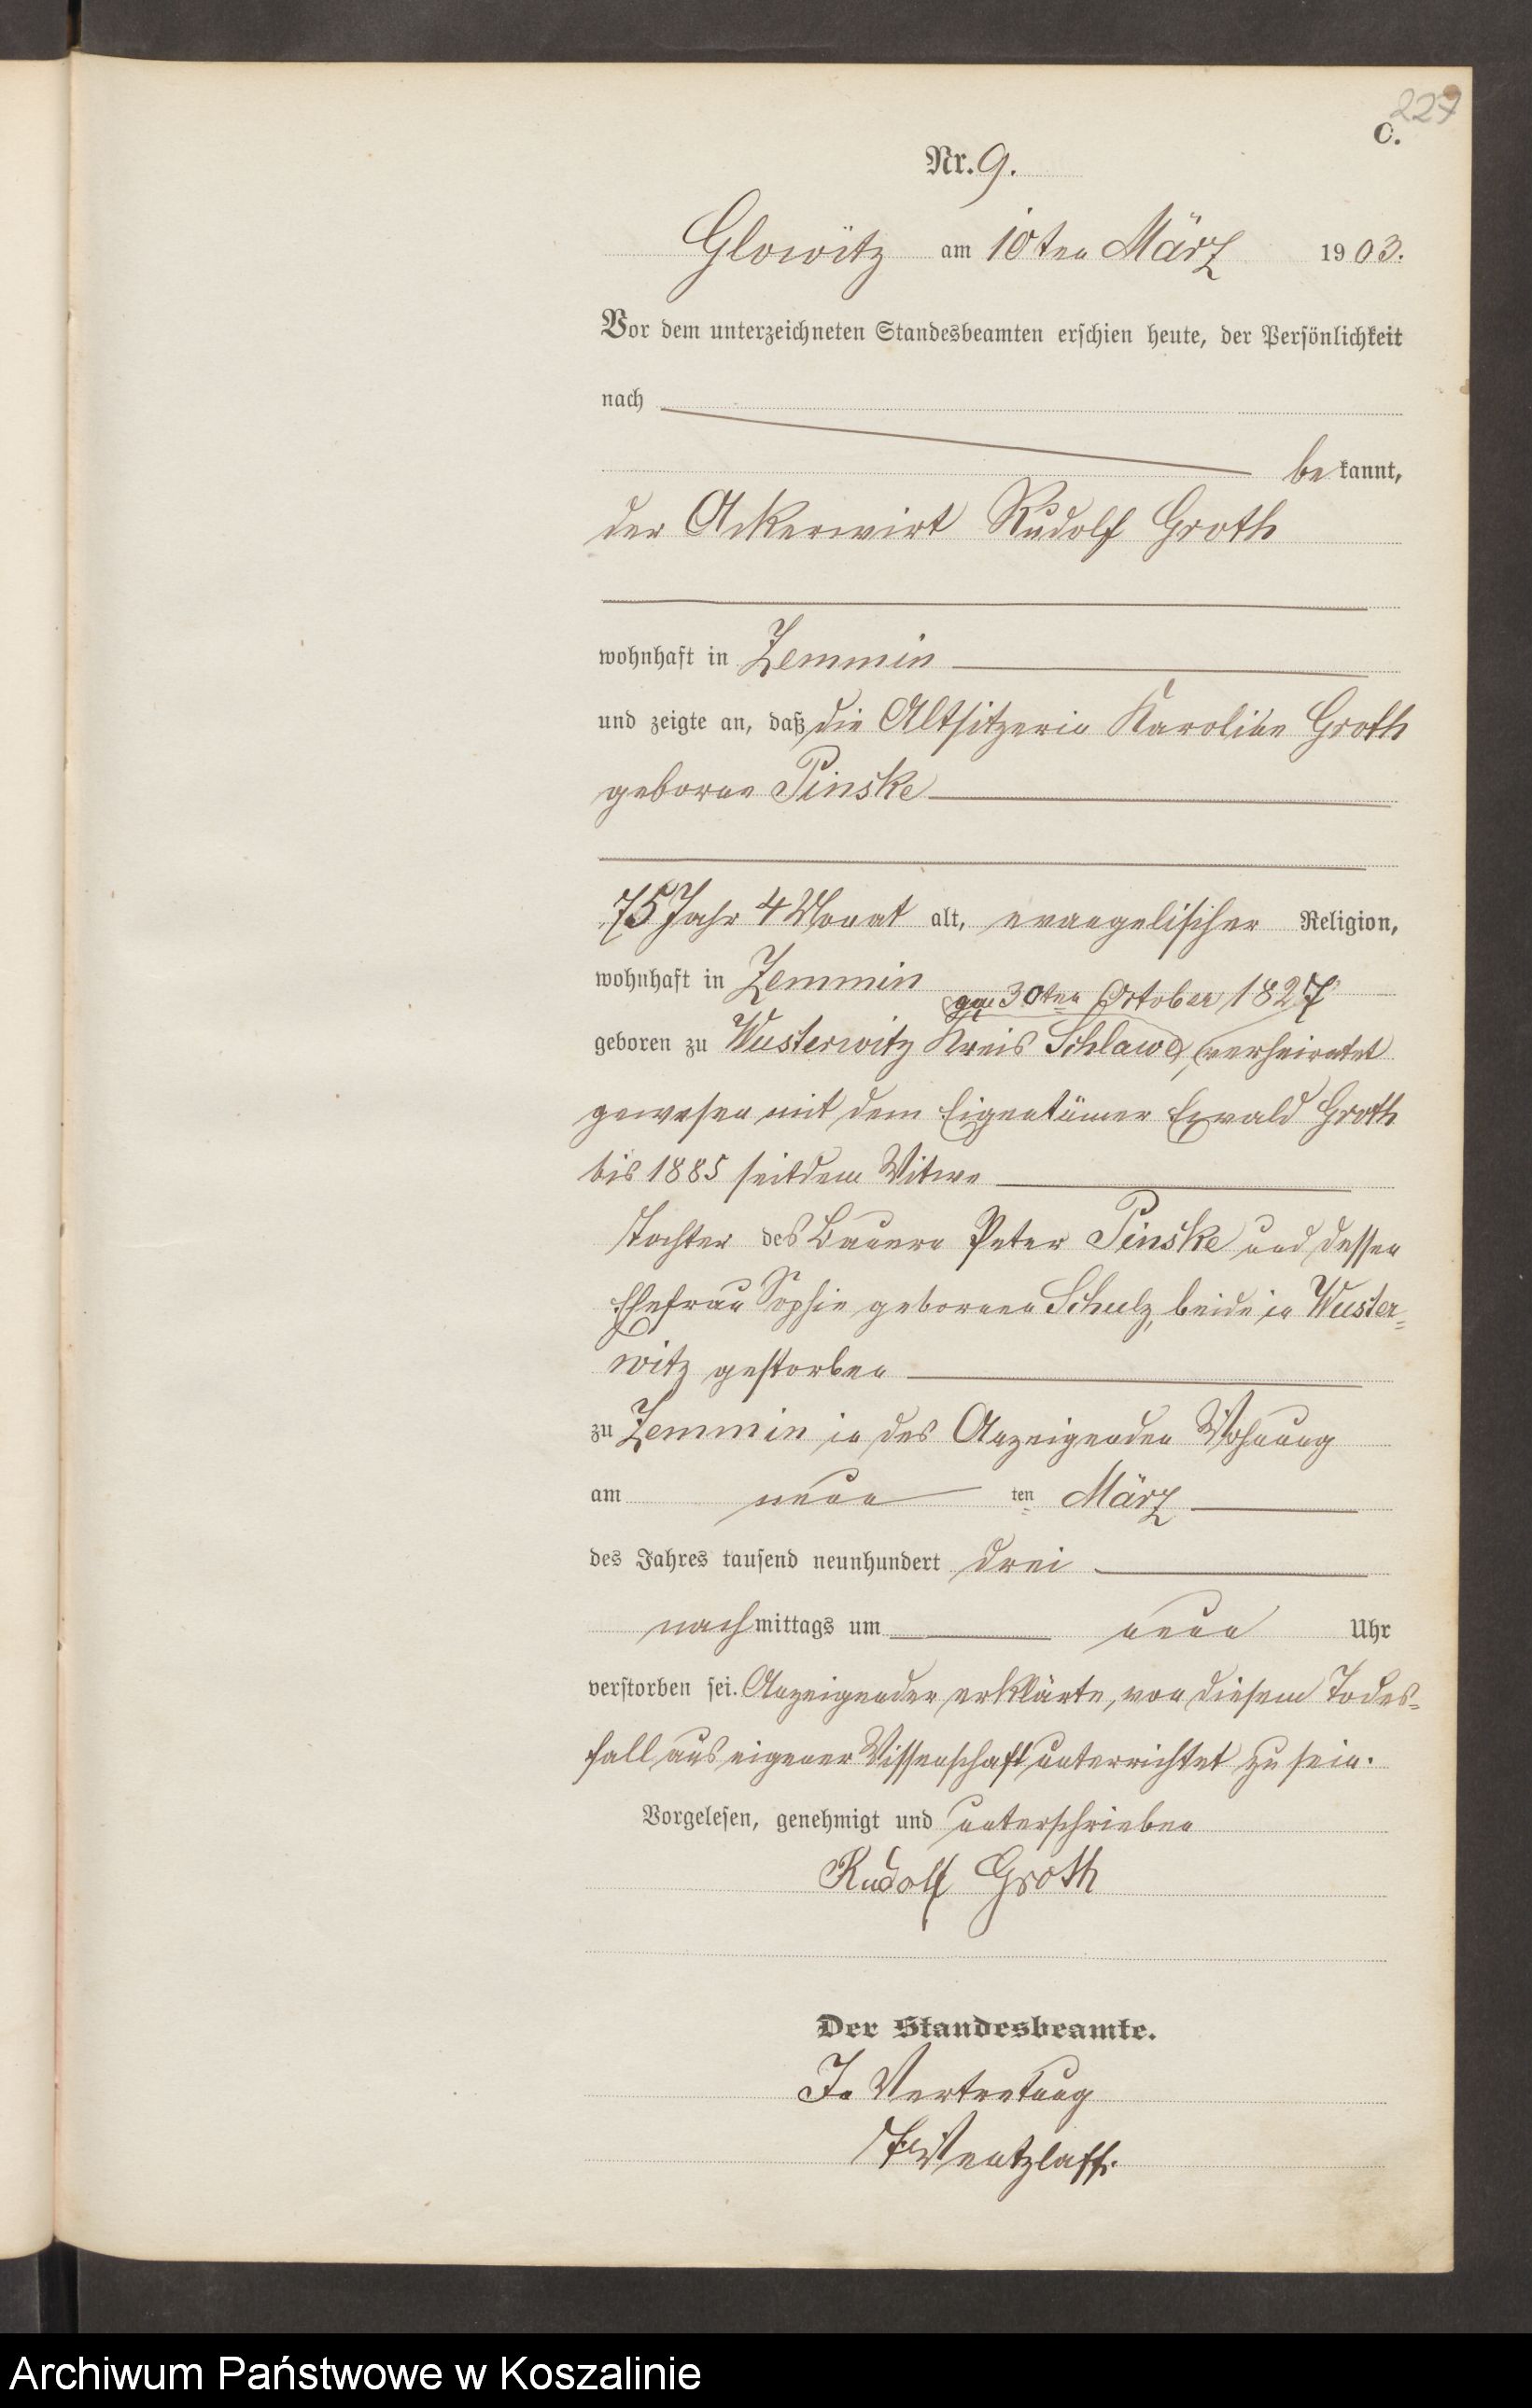 227
C.
Nr. 9.
Glowitz am 10ten März 1903.
Vor dem unterzeichneten Standesbeamten erschien heute, der Persönlichkeit
nach
bekannt,
der Ackerwirt Rudolf Groth
wohnhaft in Zemmin
und zeigte an, daß die Altsitzerin Karoline Groth
geborne Pinske
75 Jahr 4 Monat alt, evangelischer Religion,
wohnhaft in Zemmin
am 30ten October 1827
geboren zu Wusterwitz Kreis Schlawe, verheiratet
gewesen mit dem Eigentümer Ewald Groth
bis 1885 seitdem Witwe
Tochter des Bauern Peter Pinske und dessen
Ehefrau Sophie gebornen Schulz, beide in Wuster=
witz gestorben
zu Zemmin in des Anzeigenden Wohnung
am neun ten März
des Jahres tausend neunhundert drei
nachmittags um neun Uhr
verstorben sei. Anzeigender erklärte, von diesem Todes=
fall aus eigener Wissenschaft unterrichtet zu sein.
Vorgelesen, genehmigt und unterschrieben
Rudolf Groth
Der Standesbeamte.
In Vertretung
Wentzlaff.
Archiwum Państwowe w Koszalinie